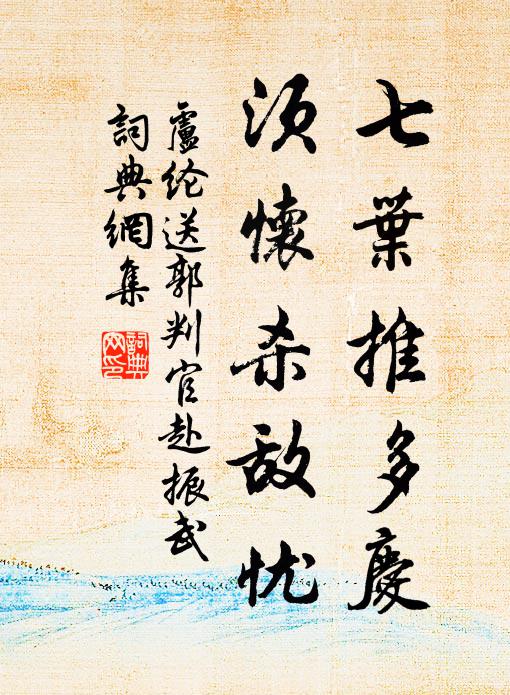 七葉推多慶
须懷杀敌忧
盧纶送郭判官赴振武
詞典網集